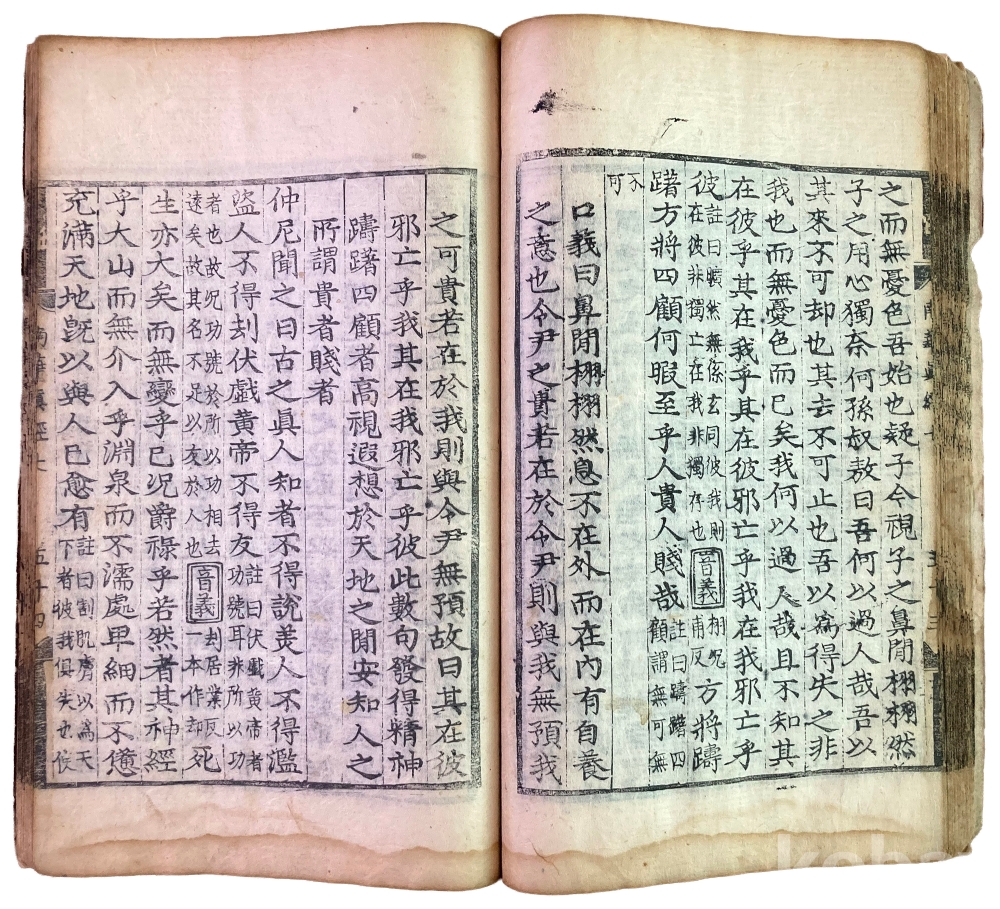 之而無憂色吾始也疑子今視子之鼻間栩栩然
子之用心獨奈何孫叔敖曰吾何以過人哉吾以
其來不可却也其去不可止也吾以爲得失之非
我也而無憂色而已矣我何以過人哉且不知其
在彼乎其在我乎其在彼邪亡乎我在我邪亡乎
彼註曰曠然無係玄同彼我則在彼非獨亡在我非獨存也音義栩况甫反方將躊
躇方將四顧何暇至乎人貴人賤哉註曰躊躇四顧謂無可無
不可
口義曰鼻間栩栩然息不在外而在內有自養
之意也令尹之貴若在於令尹則與我無預我
之可貴若在於我則與令尹無預故曰其在彼
邪亡乎我其在我邪亡乎彼此數句發得精神
躊躇四顧者高視遐想於天地之間安知人之
所謂貴者賤者
仲尼聞之曰古之眞人知者不得說美人不得濫
盜人不得刦伏戲黃帝不得友註曰伏戲黃帝者功號耳非所以功
者也故况功號於所以功相去遠矣故其名不足以友於人也音義刦居業反一本作却死
生亦大矣而無變乎已况爵祿乎若然者其神經
乎大山而無介入乎淵泉而不濡處卑細而不憊
充滿天地旣以與人已愈有註曰割肌膚以爲天下者彼我俱失也候
南華眞經七 五十四